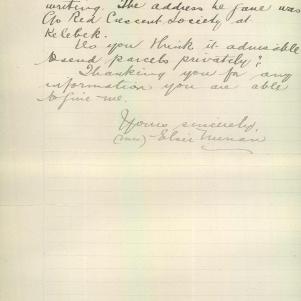 writing. The address he gave was
C/o Red Crescent Society at
Kelebek.
Do you think it advisable
to send parcels privately?
Thanking you for any
information you are able
to give me.
Yours sincerely,
(Mrs) Elsie